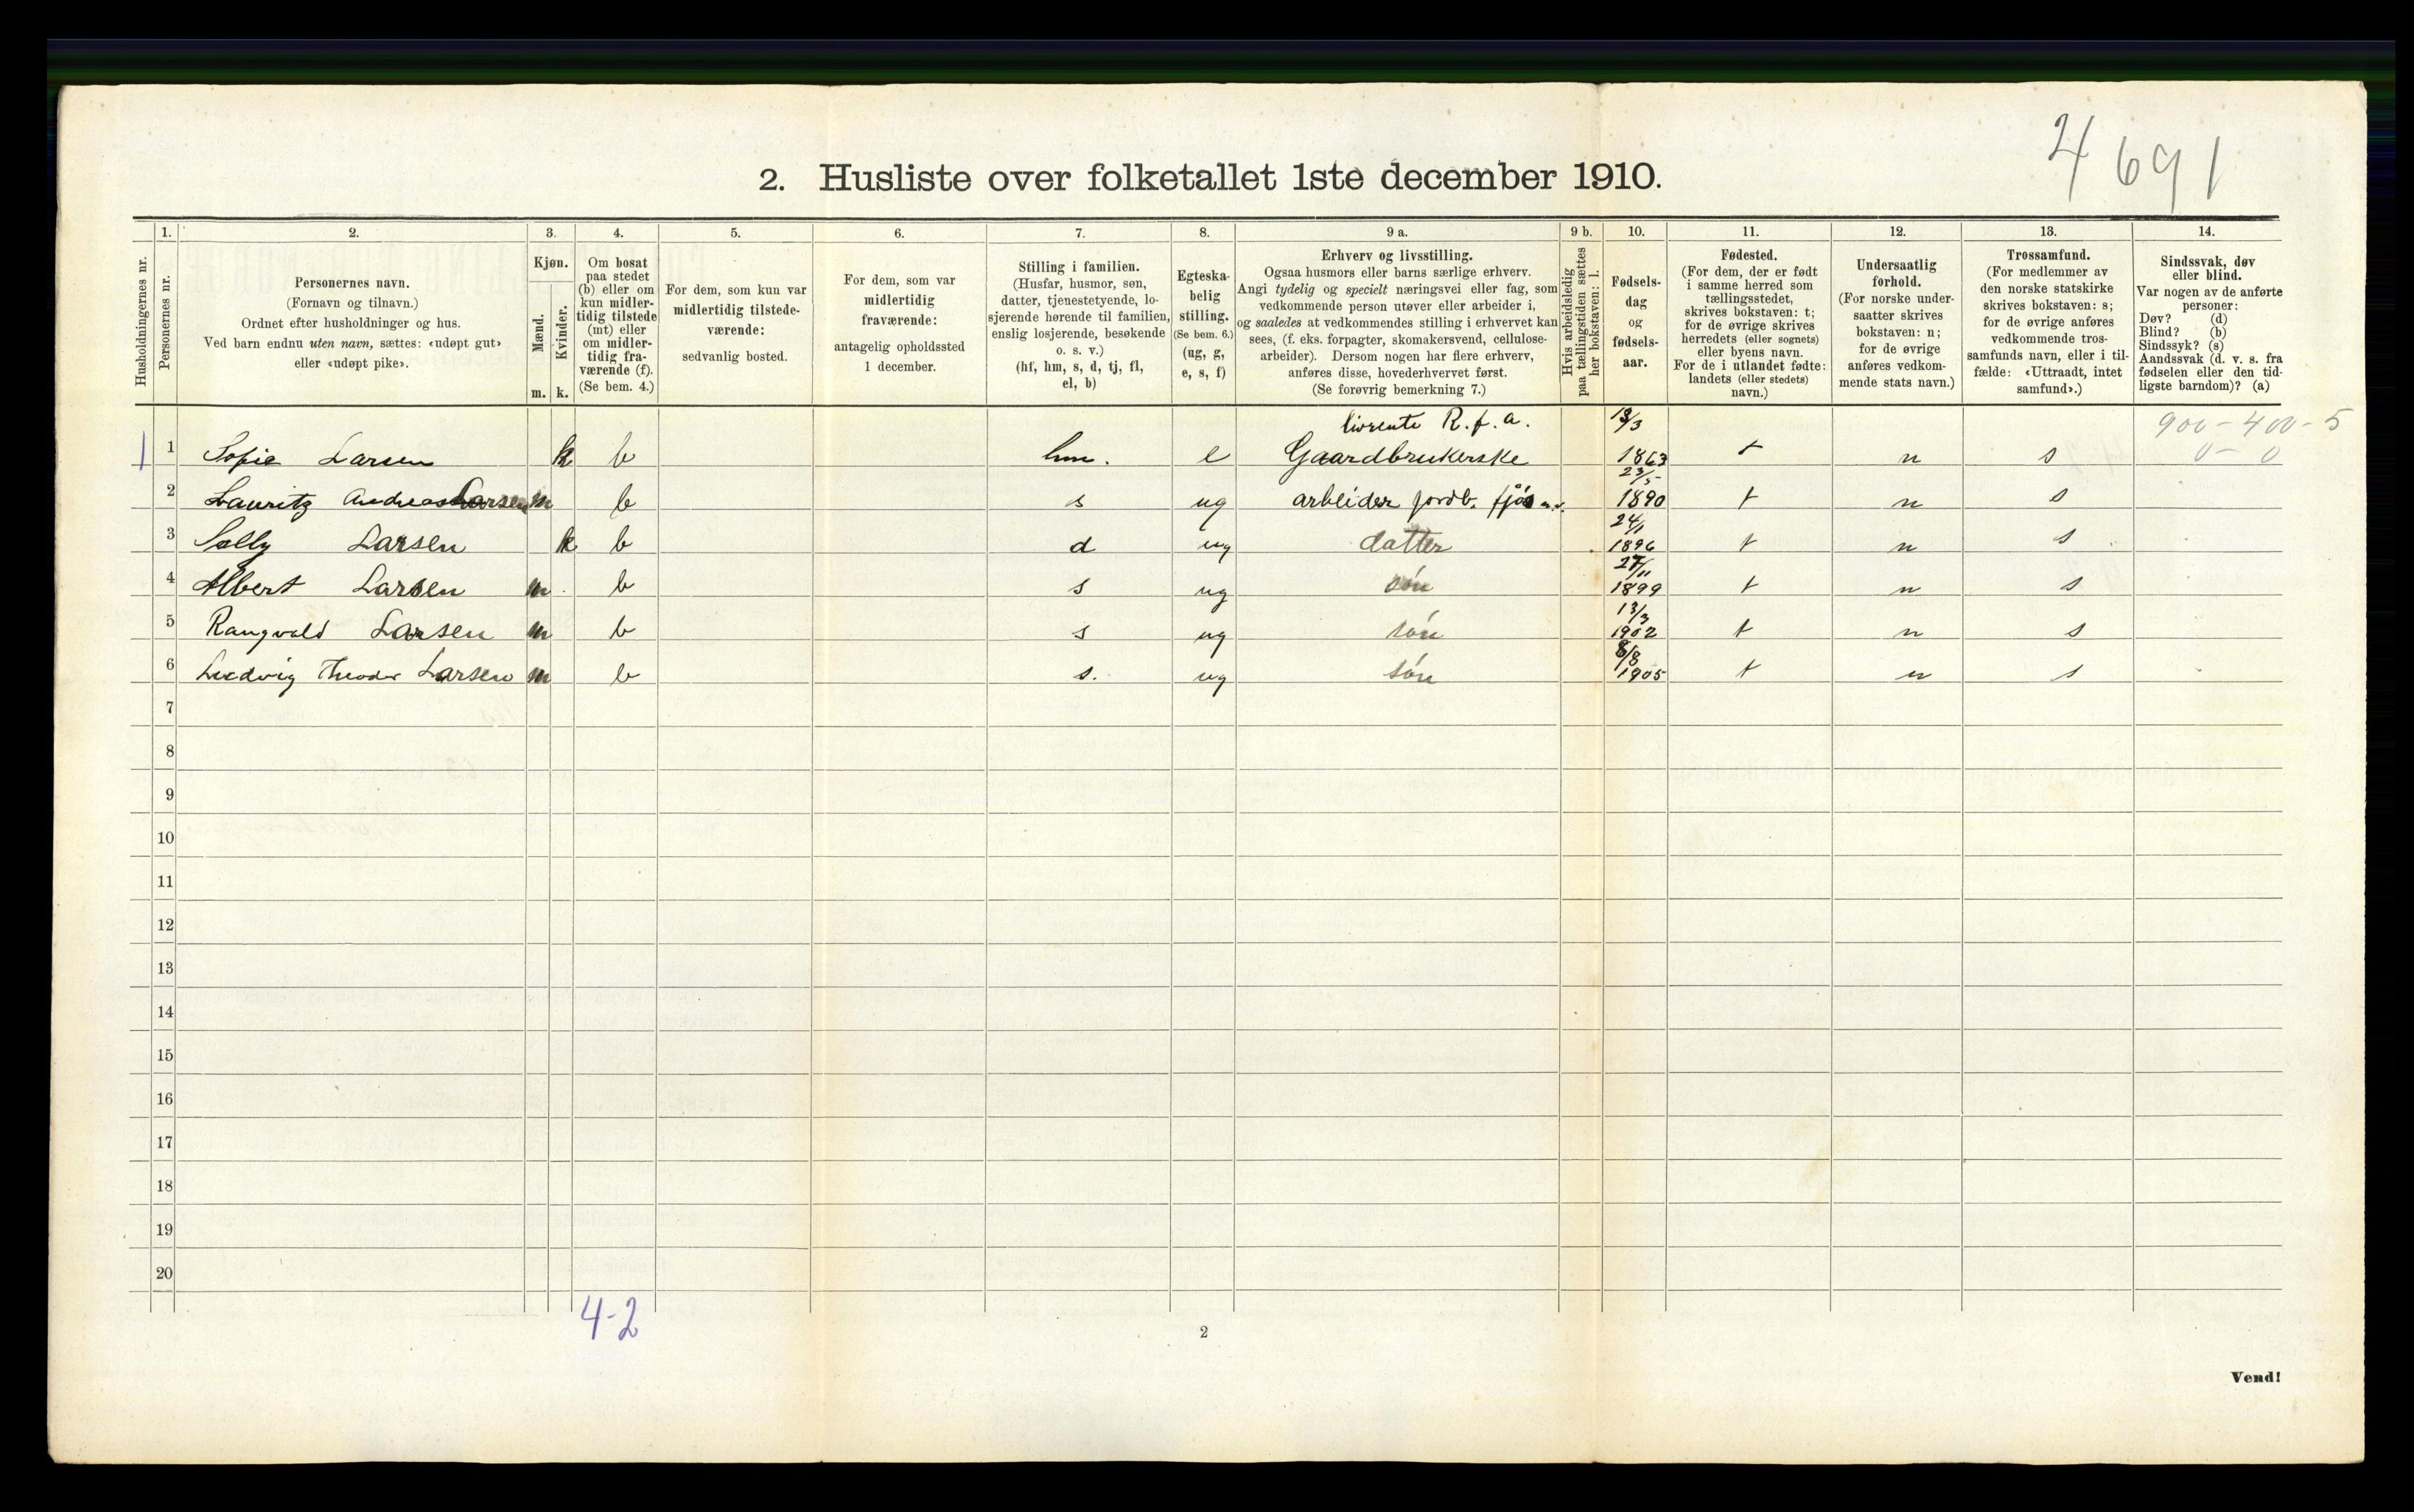 4691
2. Husliste over folketallet 1ste december 1910.
Husholdningernes nr.
1.
Personernes nr.
2.
Personernes navn.
(Fornavn og tilnavn.)
Ordnet efter husholdninger og hus.
Ved barn endnu uten navn, sættes: «udøpt gut»
eller «udøpt pike».
3.
Kjøn.
Mænd.
Kvinder.
m. k.
4.
Om bosat
paa stedet
(b) eller om
kun midler-
tidig tilstede
(mt) eller
om midler-
tidig fra-
værende (f).
(Se bem. 4.)
5.
For dem, som kun var
midlertidig tilstede-
værende:
sedvanlig bosted.
6.
For dem, som var
midlertidig
fraværende:
antagelig opholdssted
1 december.
7.
Stilling i familien.
(Husfar, husmor, søn,
datter, tjenestetyende, lo-
sjerende hørende til familien,
enslig losjerende, besøkende
o. s. v.)
(hf, hm, s, d, tj, fl,
el, b)
8.
Egteska-
belig
stilling.
(Se bem. 6.)
(ug, g,
e, s, f)
9 a.
Erhverv og livsstilling.
Ogsaa husmors eller barns særlige erhverv.
Angi tydelig og specielt næringsvei eller fag, som
vedkommende person utøver eller arbeider i,
og saaledes at vedkommendes stilling i erhvervet kan
sees, (f. eks. forpagter, skomakersvend, cellulose-
arbeider). Dersom nogen har flere erhverv,
anføres disse, hovederhvervet først.
(Se forøvrig bemerkning 7.)
9 b.
Hvis arbeidsledig
paa tællingstiden sættes
her bokstaven: l.
10.
Fødsels-
dag
og
fødsels-
aar.
11.
Fødested.
(For dem, der er født
i samme herred som
tællingsstedet,
skrives bokstaven: t;
for de øvrige skrives
herredets (eller sognets)
eller byens navn.
For de i utlandet fødte:
landets (eller stedets)
navn.)
12.
Undersaatlig
forhold.
(For norske under-
saatter skrives
bokstaven: n;
for de øvrige
anføres vedkom-
mende stats navn.)
13.
Trossamfund.
(For medlemmer av
den norske statskirke
skrives bokstaven: s;
for de øvrige anføres
vedkommende tros-
samfunds navn, eller i til-
fælde: «Uttraadt, intet
samfund».)
14.
Sindssvak, døv
eller blind.
Var nogen av de anførte
personer:
Døv? (d)
Blind? (b)
Sindssyk? (s)
Aandssvak (d. v. s. fra
fødselen eller den tid-
ligste barndom)? (a)
livrente R. f. a. 13/3 900-400-5
1 1 Sofie Larsen k b hm. e Gaardbrukerske 1863 t n s 0-0
23/5
2 Lauritz Andreas Larsen m b s ug arbeider jordb. 1890 t n s
24/1
3 Solly Larsen k b d ug datter 1896 t n s
27/11
4 Albert Larsen m b s ug søn 1899 t n s
13/3
5 Rangvald Larsen m b s ug søn 1902 t n s
8/8
6 Ludvig Theodor Larsen m b s. ug søn 1905 t n s
7
8
9
10
11
12
13
14
15
16
17
18
19
20
4-2
2
Vend!